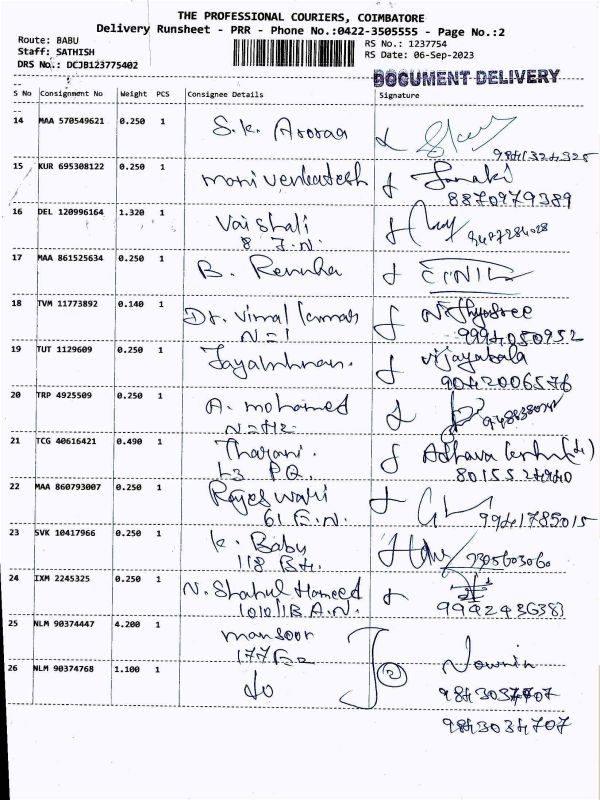 THE PROFESSIONAL COURIERS, COIMBATORE
Delivery Runsheet - PRR - Phone No.:0422-3505555 - Page No.:2
Route: BABU
RS No.: 1237754
Staff: SATHISH
RS Date: 06-Sep-2023
DRS No.: DCJB123775402
DOCUMENT DELIVERY
S No Consignment No Weight PCS Consignee Details Signature
14 MAA 570549621 0.250 1 S.K.
15 KUR 695308122 0.250 1 mani venkatesh Janaki
8870979389
16 DEL 120996164 1.320 1 Vaishali
8 J.N.
17 MAA 861525634 0.250 1 B. Renuka
18 TVM 11773892 0.140 1 Dr. Vimal kumar
N=1 9994050952
19 TUT 1129609 0.250 1 Vijayabala
9042006576
20 TRP 4925509 0.250 1 A. mohamed
21 TCG 40616421 0.490 1 Tharani.
L3 P.Q.
22 MAA 860793007 0.250 1 Rajeswari
61 E.N. 9941785015
23 SVK 10417966 0.250 1 K. Baby
118 2305603060
24 IXM 2245325 0.250 1 N. Shahul Hameed
1010/1 B.A.N.
25 NLM 90374447 4.200 1 mansoor
26 NLM 90374768 1.100 1 do 2
9843034707